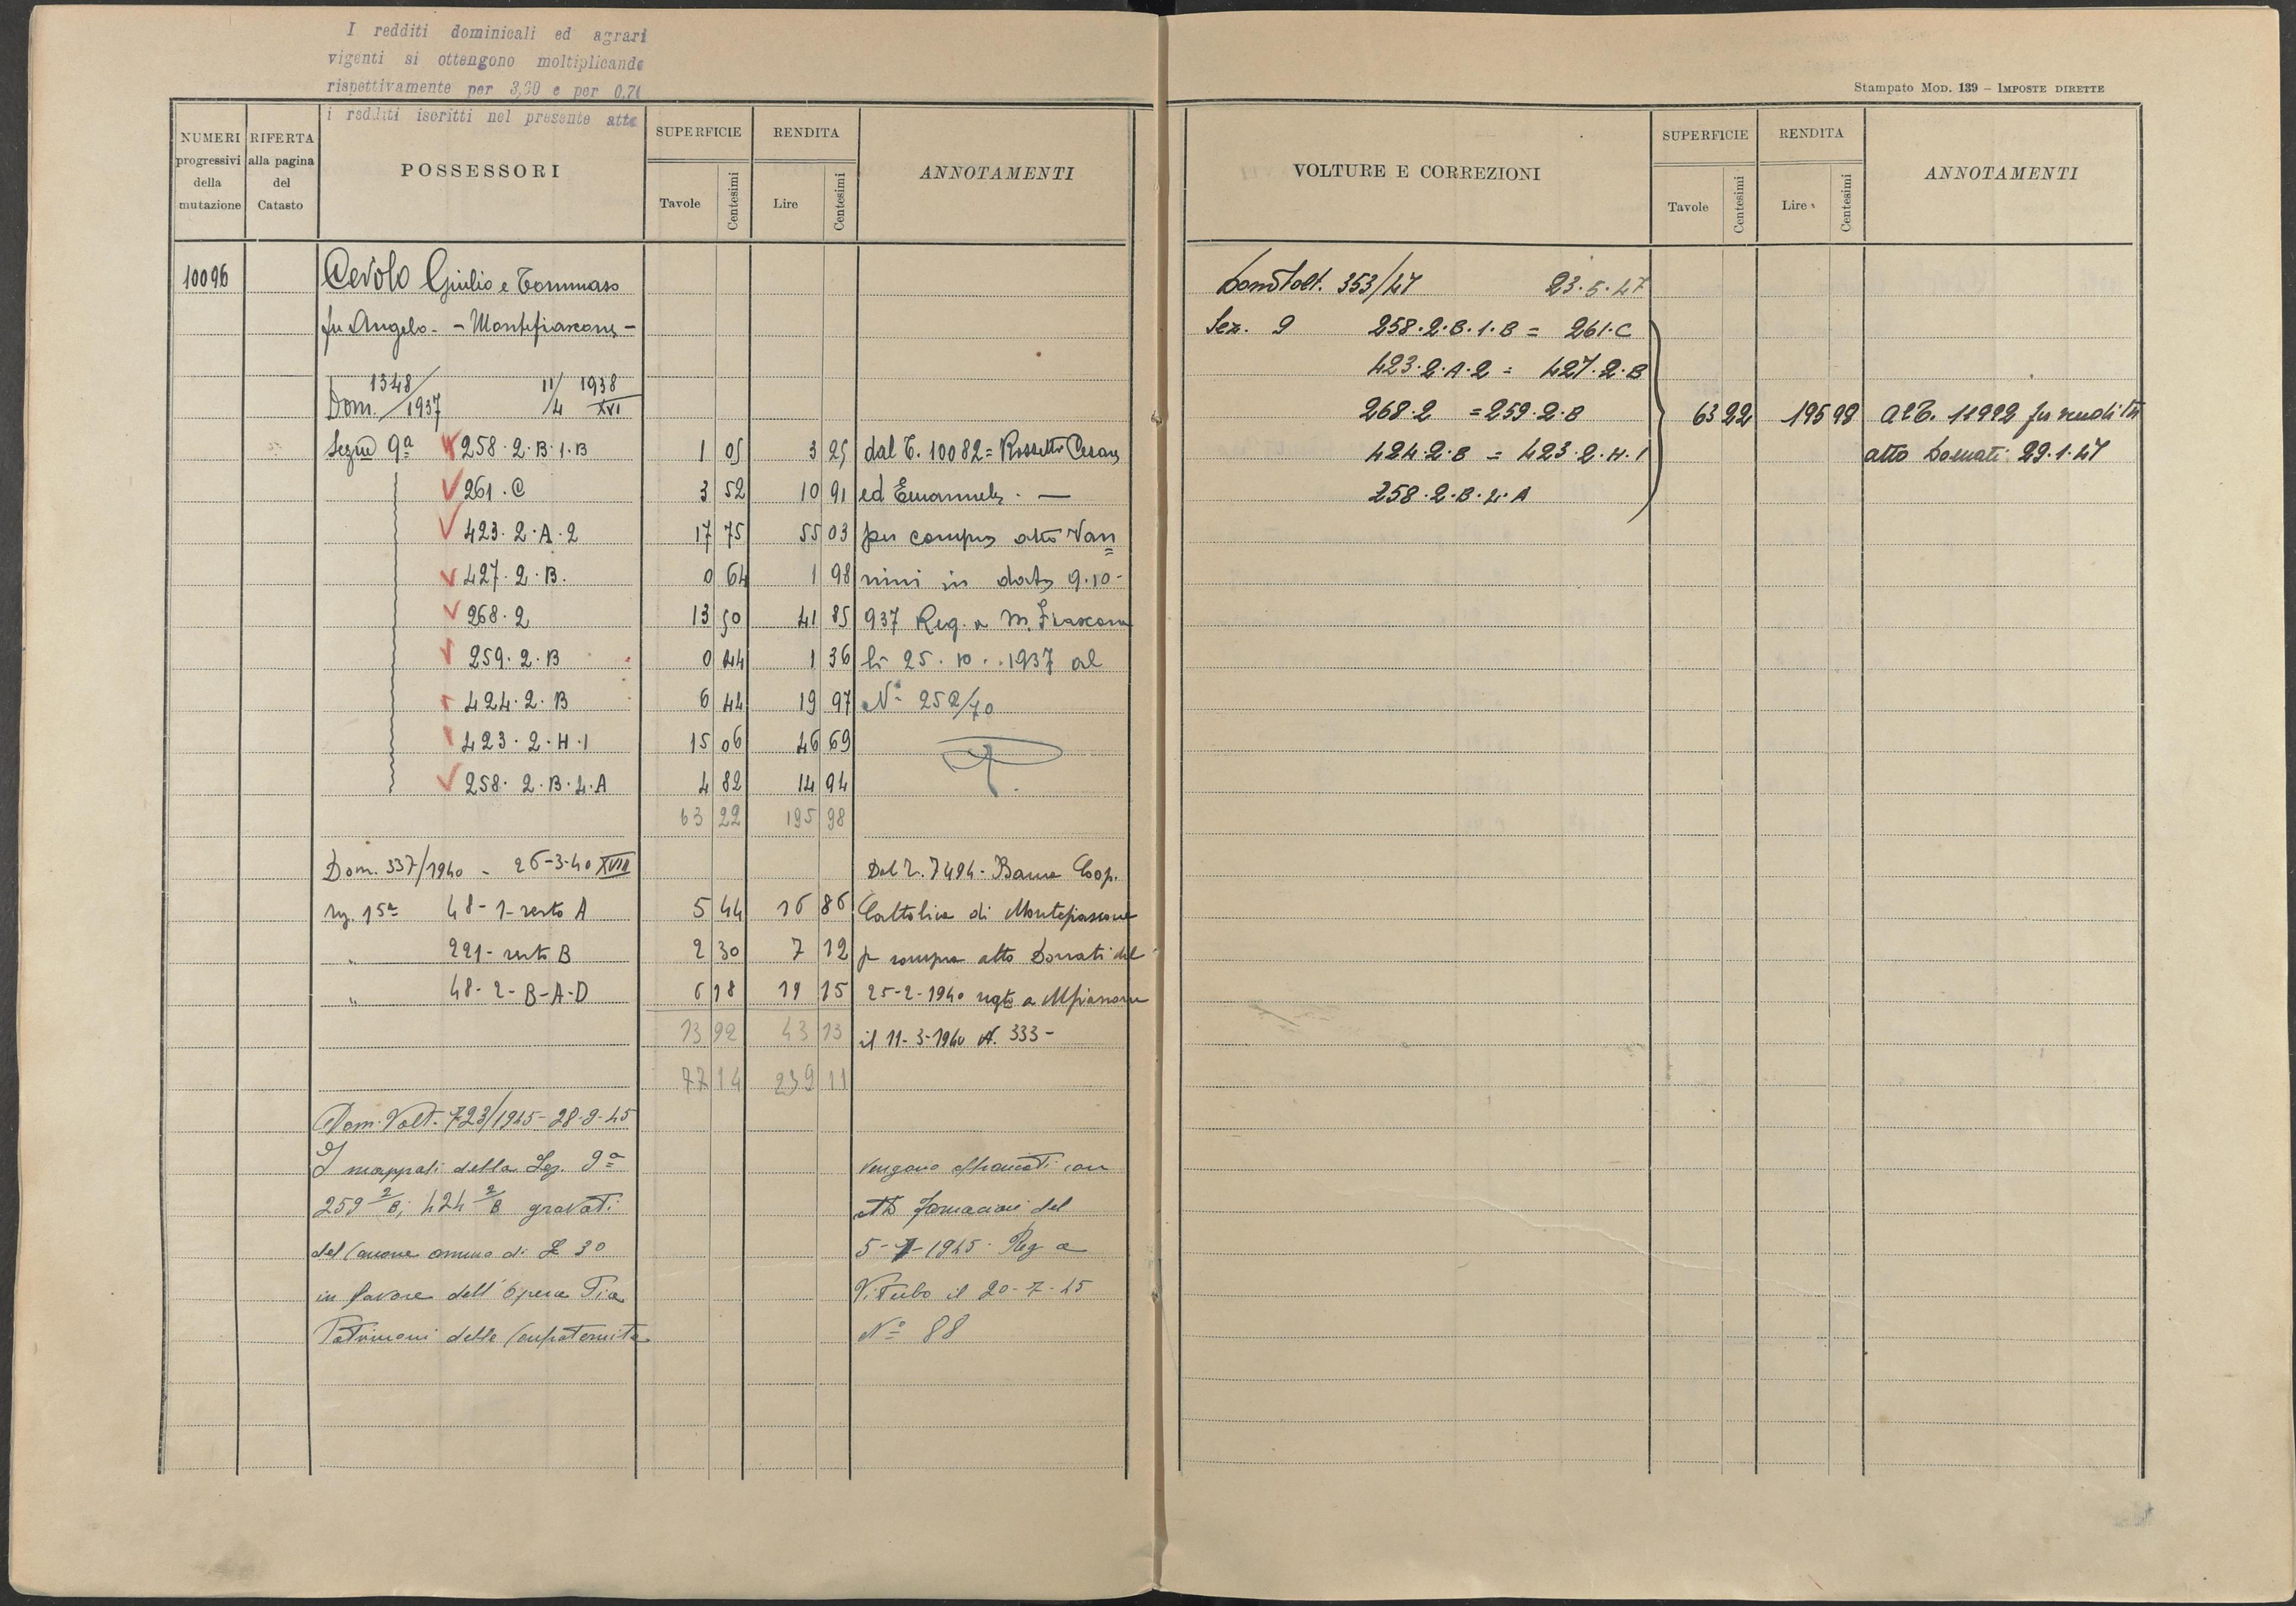 I redditi dominicali ed agrari
vigenti si ottengono moltiplicando
rispettivamente per 3,20 e per 0,74
i redditi iscritti nel presente atto
Stampato Mod. 139 – Imposte dirette
NUMERI progressivi della mutazione
RIFERTA alla pagina del Catasto
POSSESSORI
SUPERFICIE Tavole Centesimi
RENDITA Lire Centesimi
ANNOTAMENTI
10096 Cevolo Giulio e Tommaso
fu Angelo - - Montefiascone -
1348/ 11/ 1938
Dom. /1937 /4 XVI
Sezne 9ª 258.2.B.1.B 1 05 3 25 dal T. 10082 = Rossetti Cesare
261.C 3 52 10 91 ed Emanuele. —
423.2.A.2 17 75 55 03 per compra atto Van=
427.2.B. 0 64 1 98 nini in data 9.10-
268.2 13 50 41 85 937 Reg. a M.Fiascone
259.2.B 0 44 1 36 li 25.10..1937 al
424.2.B 6 44 19 97 N° 252/70
423.2.H.1 15 06 46 69
258.2.B.4.A 4 82 14 94
63 22 195 98
Dom. 337/1940 - 26-3-40 XVIII Dal T. 7494 - Banca Coop.
sez. 15ª 48-1-resto A 5 44 16 86 Cattolica di Montefiascone
" 221-resto B 2 30 7 12 p compra atto Donati del
" 48-2-B-A-D 6 18 19 15 25-2-1940 regto a Mfiascone
13 92 43 13 il 11-3-1940 N. 333-
77 14 239 11
Dom. Volt. 723/1945 - 28-9-45
I mappali della Sez. 9ª vengono affrancati con
259 2/B; 424 2/B gravati atto del
del Canone annuo di £ 30 5-7-1945. Reg a
in favore dell'Opera Pia Viterbo il 20-7-45
Patrimoni delle Confraternite N° 88
VOLTURE E CORREZIONI
SUPERFICIE Tavole Centesimi
RENDITA Lire Centesimi
ANNOTAMENTI
Dom Volt. 353/47 23.5.47
Sez. 9 258.2.B.1.B = 261.C
423.2.A.2 = 427.2.B
268.2 = 259.2.B 63 22 195 98 Al T. 11992 per vendita
424.2.B = 423.2.H.1 atto Donati 29.1.47
258.2.B.4.A